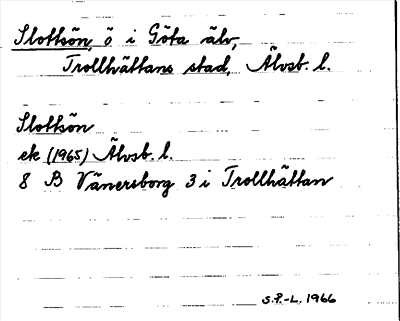 Slottsön, ö i Göta älv,
Trollhättans stad, Älvsb. l.
Slottsön
ek (1965) Älvsb. l.
8 B Vänersborg 3 i Trollhättan
S.P.-L. 1966